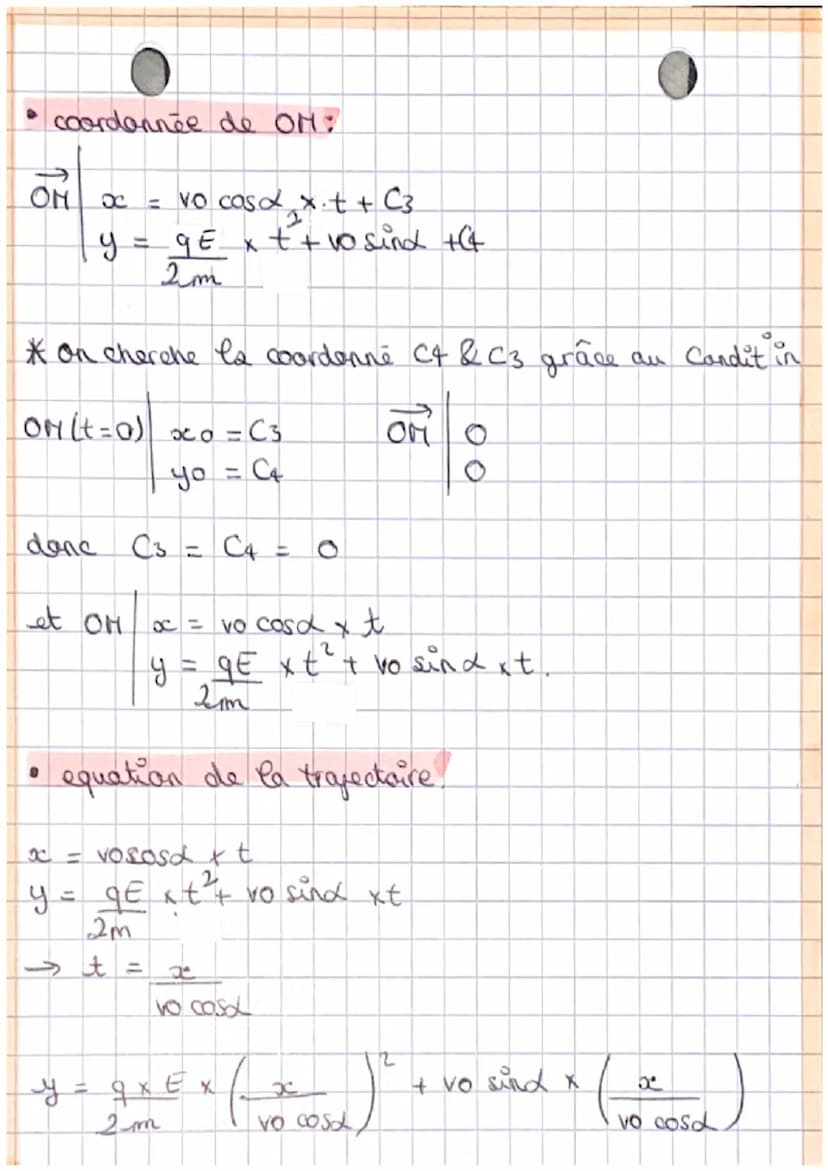 • coordonnée de OM :
OM | x = v0 cosα x.t + C3
y = qE/2m x t² + v0 sinα + C4
* on cherche la coordonné C4 & C3 grâce au Condit°in
OM(t=0) | x0 = C3 OM | 0
y0 = C4 | 0
donc C3 = C4 = 0
et OM | x = v0 cosα x t
y = qE/2m x t² + v0 sinα x t.
• equation de la trajectoire.
x = v0sosα x t
y = qE/2m x t² + v0 sinα xt
→ t = x/v0 cosα
y = q x E/2m x (x/v0 cosα)² + v0 sinα x (x/v0 cosα)